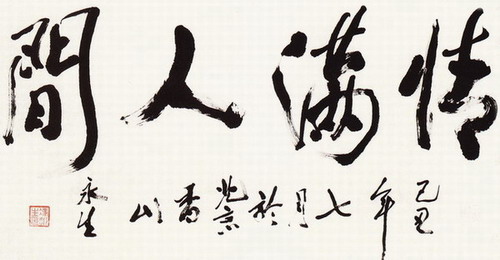 情满人間
己丑年七月於北京香山
永生